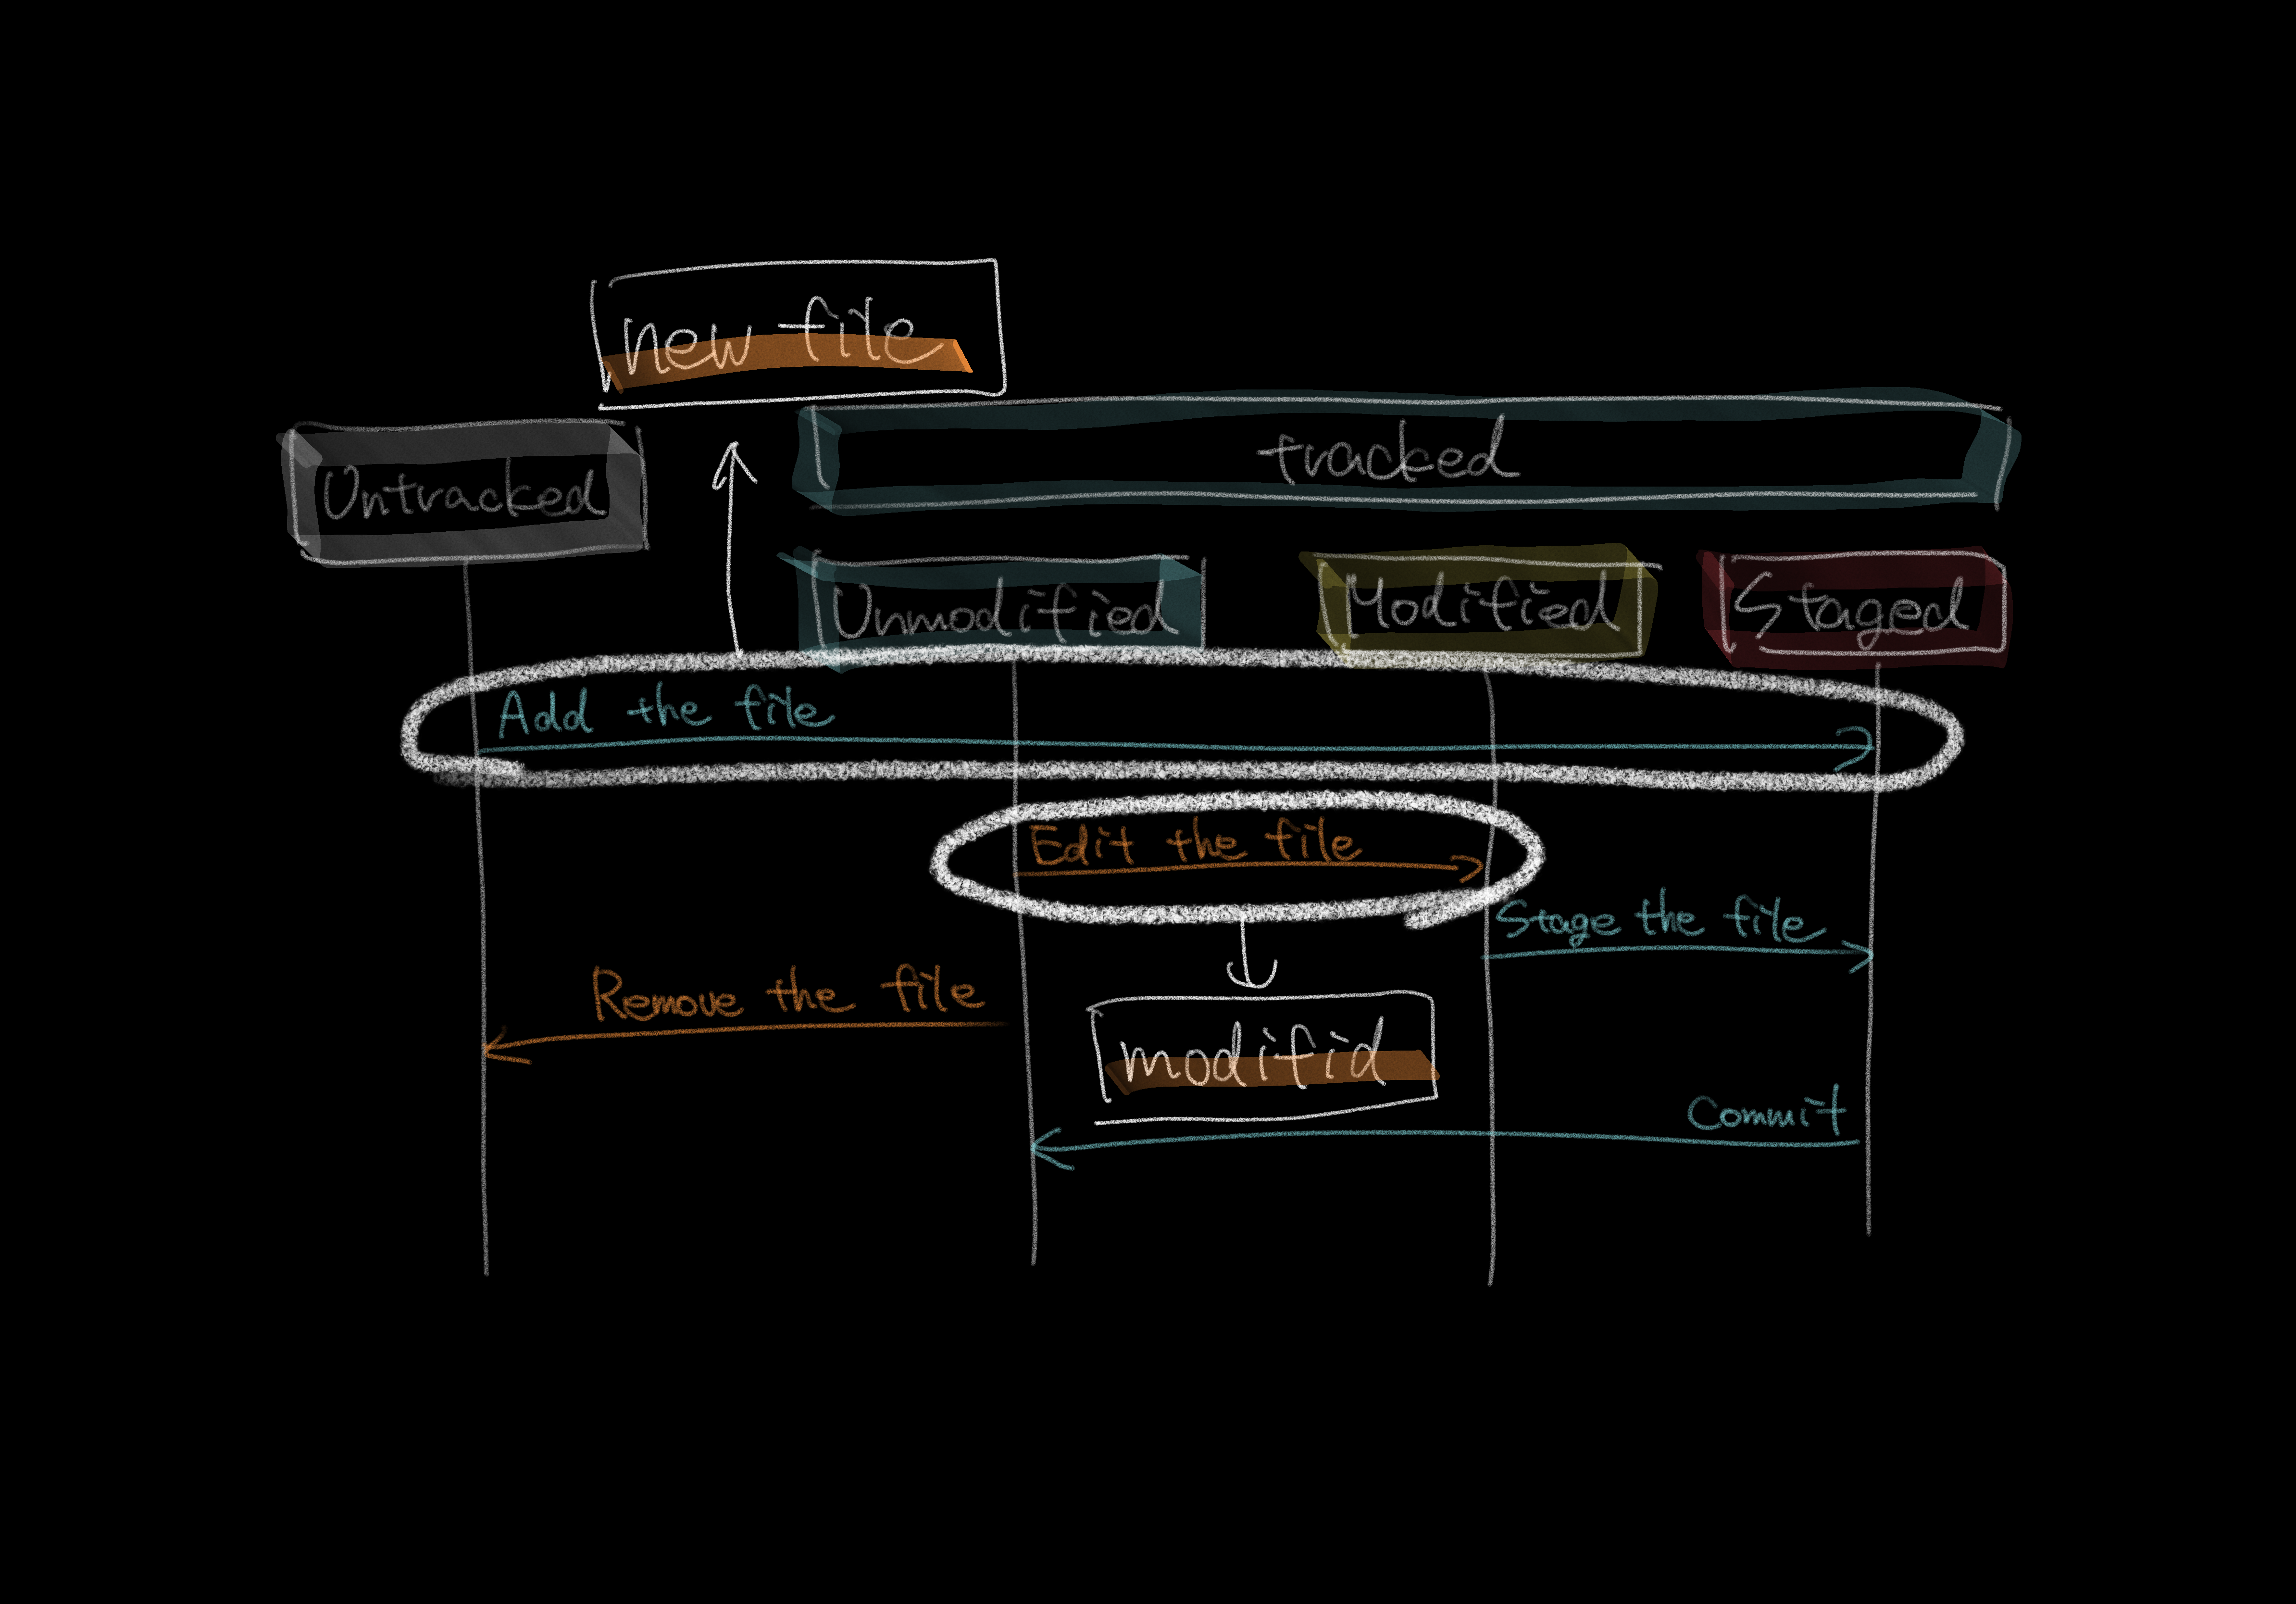 new file
tracked
Untracked
Unmodified
Modified
Staged
Add the file
Edit the file
Stage the file
Remove the file
modifid
Commit